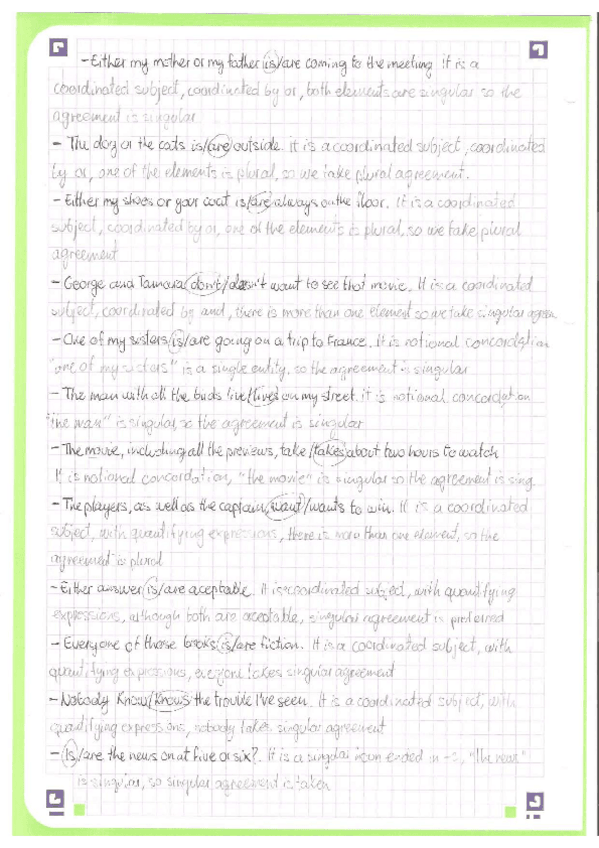 - Either my mother or my father is/are coming to the meeting it is a
coordinated subject, coordinated by or, both elements are singular so the
agreement is singular
- The dog or the cats is/are outside. it is a coordinated subject, coordinated
by or, one of the elements is plural, so we take plural agreement.
- Either my shoes or your coat is/are always on the floor. It is a coordinated
subject, coordinated by or, one of the elements is plural, so we take plural
agreement
- George and Tamara don't/doesn't want to see that movie. It is a coordinated
subject, coordinated by and, there is more than one element so we take singular
- One of my sisters is/are going on a trip to France. It is notional concordation
"one of my sisters" is a single entity, so the agreement is singular
- The man with all the birds live/lives on my street. it is notional concordation
"the man" is singular, so the agreement is singular
- The movie, including all the previews, take/takes about two hours to watch
It is notional concordation, "the movie" is singular so the agreement is sing.
- The players, as well as the captain, want/wants to win. It is a coordinated
subject, with quantifying expressions, there is more than one element, so the
agreement is plural
- Either answer is/are aceptable. It is coordinated subject, with quantifying
expressions, although both are aceptable, singular agreement is preferred
- Everyone of those books is/are fiction. It is a coordinated subject, with
quantifying expressions, everyone takes singular agreement
- Nobody Know/Knows the trouble I've seen. It is a coordinated subject, with
quantifying expressions, nobody takes singular agreement
- Is/are the news on at five or six?. It is a singular noun ended in -s, "the news"
is singular, so singular agreement is taken